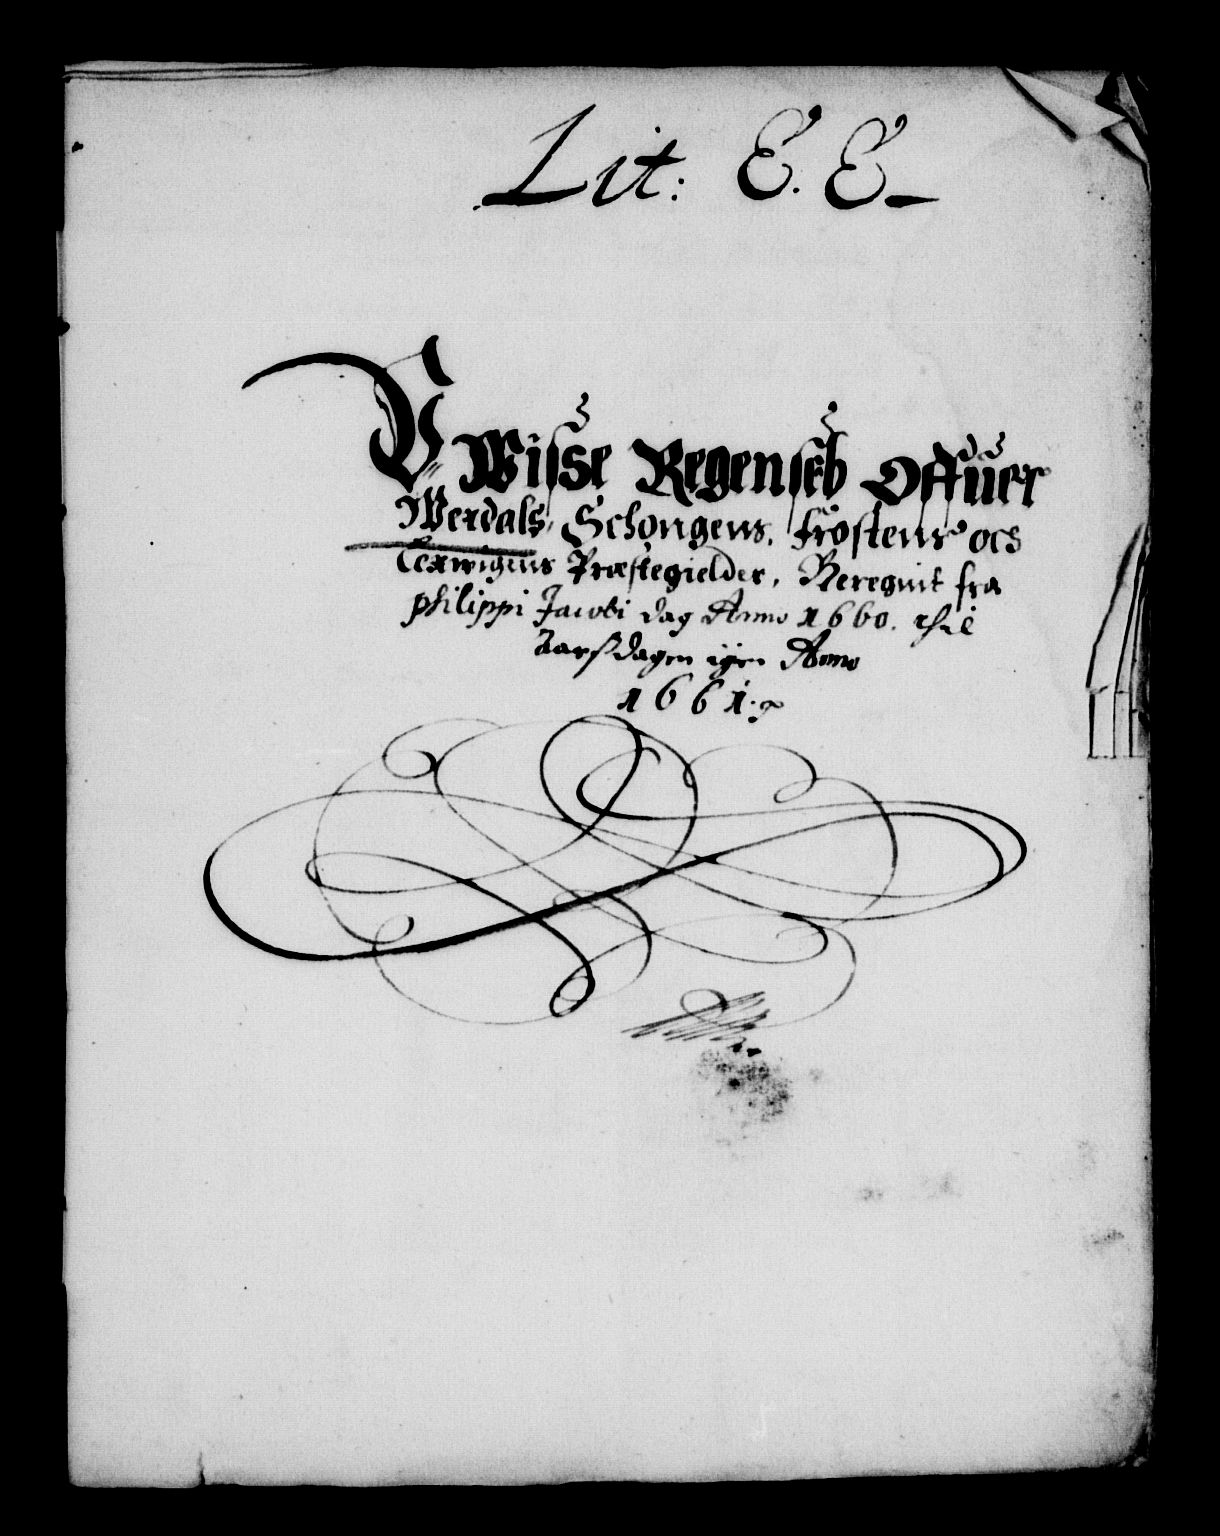 Lit: E. E
U Wisse Regenskb Offuer
Werdals, Schongens, frostens och
Lexwigens Præstegielder, Beregnit fra
philippi Jacobi dag Anno 1660. thil
Aarsdagen igen Anno
1661: